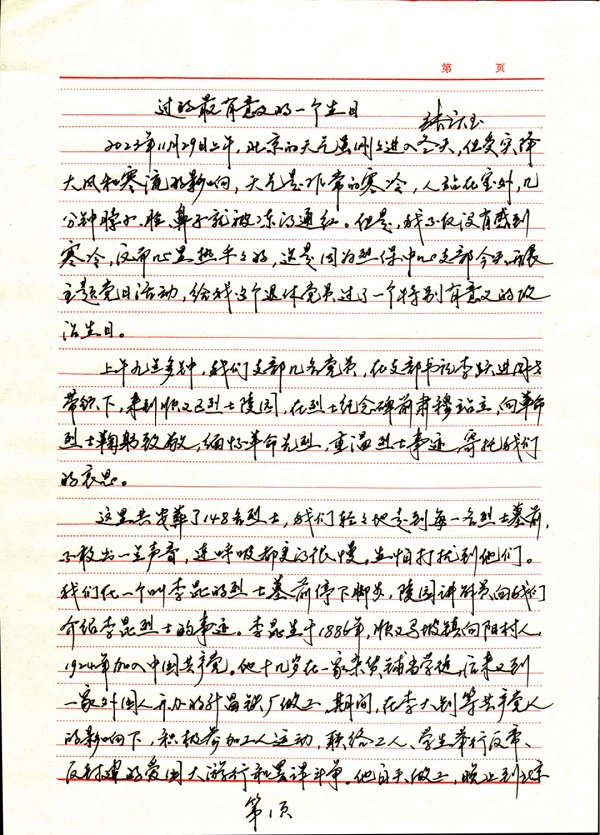 第 页
过的最有意义的一个生日
2023年11月29日上午,北京的天气虽刚刚进入冬天,但受实降
大风和寒流的影响,天气是非常的寒冷,人站在室外,几
分钟脖子、脸、鼻子就被冻得通红。但是,我不仅没有感到
寒冷,反而心里热乎乎的,这是因为烈保中心支部今天开展
主题党日活动,给我这个退休党员过了一个特别有意义的政
治生日。
上午九点多钟,我们支部几名党员,在支部书记李跃进同志
带领下,来到顺义区烈士陵园,在烈士纪念碑前肃穆站立,向革命
烈士鞠躬致敬,缅怀革命先烈,重温烈士事迹,寄托我们
的哀思。
这里共安葬了148名烈士,我们轻轻地走到每一名烈士墓前,
不敢出一点声音,连呼吸都变得很慢,生怕打扰到他们。
我们在一个叫李昆的烈士墓前停下脚步,陵园讲解员向我们
介绍李昆烈士的事迹。李昆生于1886年,顺义马坡镇向阳村人,
1924年加入中国共产党。他十几岁在一家杂货铺当学徒,后来又到
一家外国人开办的什留铁厂做工,期间,在李大钊等共产党人
的影响下,积极参加工人运动,联络工人、学生举行反帝、
反封建的爱国大游行和罢课斗争。他白天做工,晚上到北京
第1页